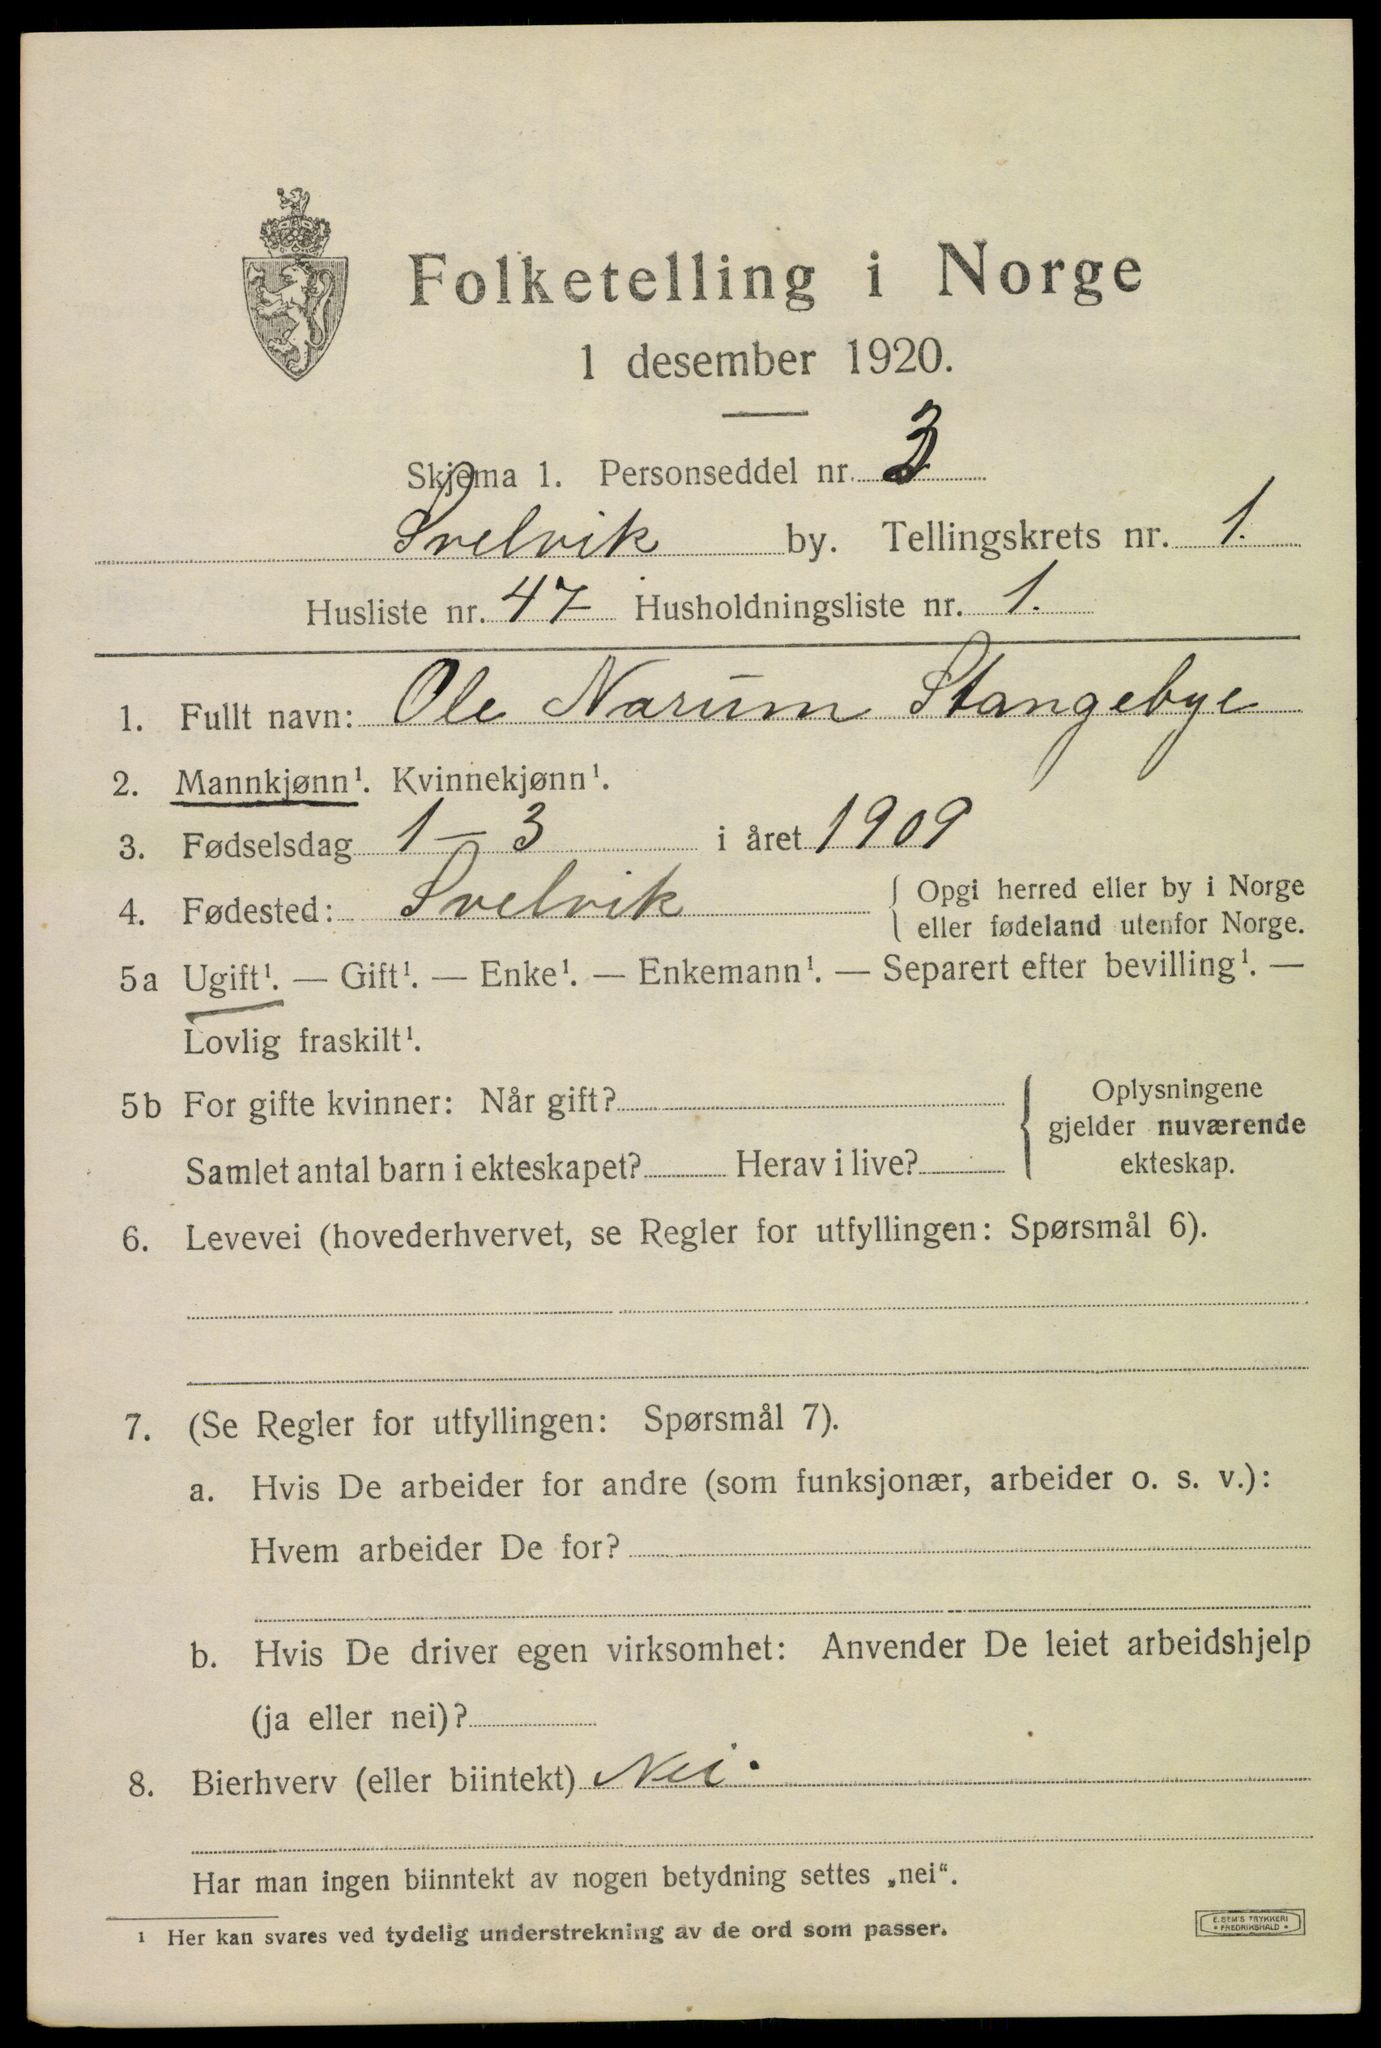 Folketelling i Norge
1 desember 1920.
Skjema 1. Personseddel nr. 3
Svelvik by. Tellingskrets nr. 1.
Husliste nr. 47 Husholdningsliste nr. 1.
1. Fullt navn: Ole Narum Stangebye
2. Mannkjønn¹. Kvinnekjønn¹.
3. Fødselsdag 1 - 3 i året 1909
4. Fødested: Svelvik { Opgi herred eller by i Norge
eller fødeland utenfor Norge.
5a Ugift¹. — Gift¹. — Enke¹. — Enkemann¹. — Separert efter bevilling¹. —
Lovlig fraskilt¹.
5b For gifte kvinner: Når gift? { Oplysningene
gjelder nuværende
Samlet antal barn i ekteskapet? Herav i live? ekteskap.
6. Levevei (hovederhvervet, se Regler for utfyllingen: Spørsmål 6).
7. (Se Regler for utfyllingen: Spørsmål 7).
a. Hvis De arbeider for andre (som funksjonær, arbeider o. s. v.):
Hvem arbeider De for?
b. Hvis De driver egen virksomhet: Anvender De leiet arbeidshjelp
(ja eller nei)?
8. Bierhverv (eller biintekt) Nei.
Har man ingen biinntekt av nogen betydning settes „nei“.
¹ Her kan svares ved tydelig understrekning av de ord som passer.
E. SEM'S TRYKKERI
* FREDRIKSHALD *